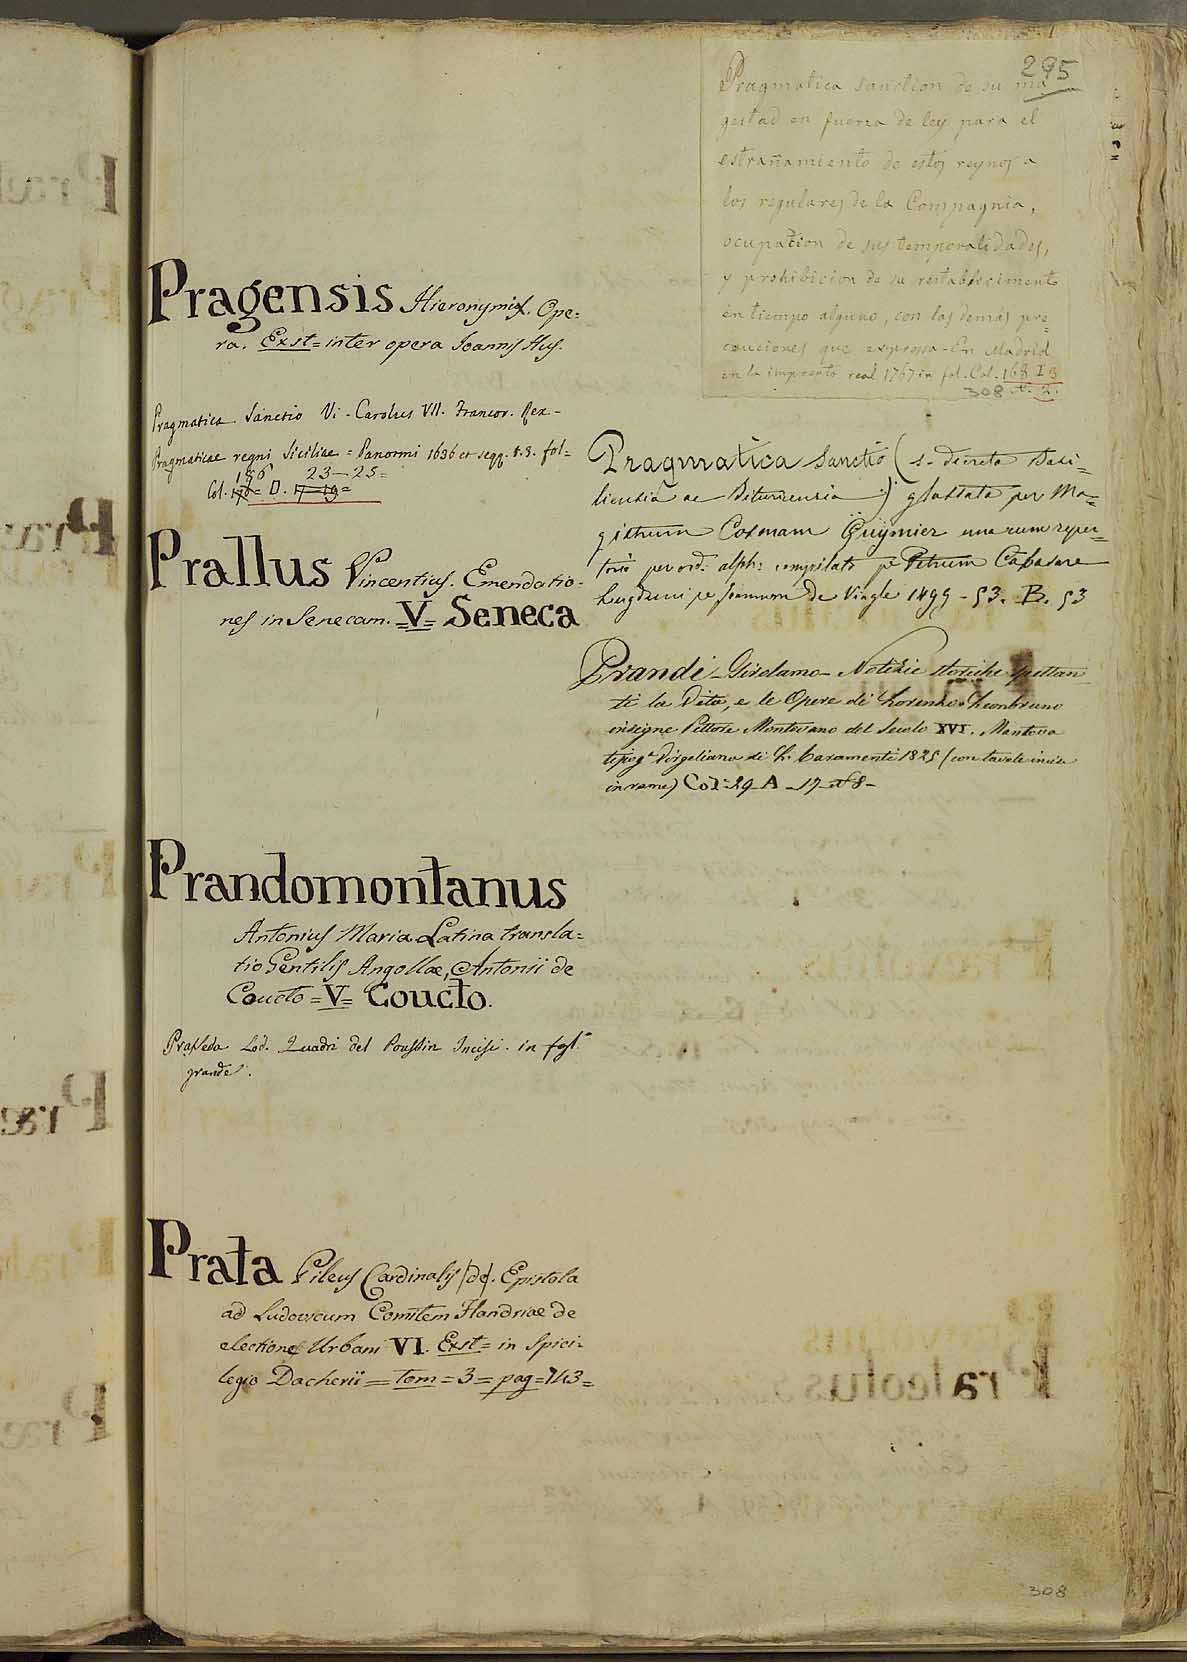 295
Pragmatica sanction de su ma
gestad en fuerza de ley para el
estrañamiento de estos reynos a
los regulares de la Compagnia,
ocupacion de sus temporalidades,
y prohibicion de su restablecimento
en tiempo alguno, con las demas pre=
cauciones que expressa - En Madrid
en la imprenta real 1767 in fol. Col. 168 I 3
308 N. 2.
Pragensis Hieronymi. Ope=
ra. Exst= inter opera Joannis Hus.
Pragmatica Sanctio Vi - Carolus VII. Francor. Rex -
Pragmaticae regni Siciliae = Panormi 1636 et seqq. t. 3. fol=
156 23-25=
Col. 170= D. 17-19=
Prallus Vincentius. Emendatio-
nes in Senecam. =V= Seneca
Prandomontanus
Antonius Maria Latina transla=
tio Gentilis Angollae, Antonii de
Coucto =V= Coucto.
Lod. Quadri del Poussin Incisi. in fogl.
grande.
Prata Pileus Cardinalis (de). Epistola
ad Ludovicum Comitem Flandriae de
electione Urbani VI. Exst= in Spici-
legio Dacherii = tom = 3 = pag = 743 =
Pragmatica Sanctio (s. decreta Basi=
liensia ac Bituricensia) glossata per Ma=
gistrum Cosmam Guÿmier una cum reper=
torio per ord: alph: compilato per Petrum
Lugduni per Joannem de Vingle 1499 - 53. B. 53
Prandi - Girolamo - Notizie storiche spettan
ti la Vita, e le Opere di Lorenzo Leonbruno
insigne Pittore Mantovano del Secolo XVI. Mantova
tipog.a Virgiliana di L. Caramenti 1825 (con tavole incise
in rame) Col: 29 A - 17 - 8 -
308